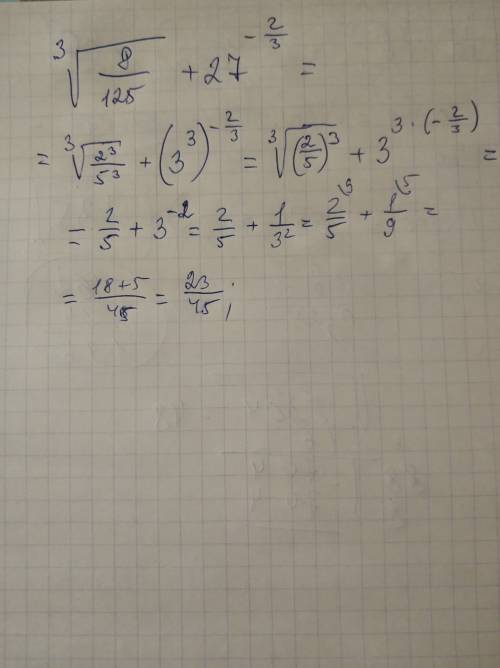 ∛(8/125) + 27^(-2/3) =
= ∛(2³/5³) + (3³)^(-2/3) = ∛((2/5)³) + 3^(3·(-2/3)) =
= 2/5 + 3^(-2) = 2/5 + 1/3² = 2/5 \9 + 1/9 \5 =
= (18+5)/45 = 23/45;